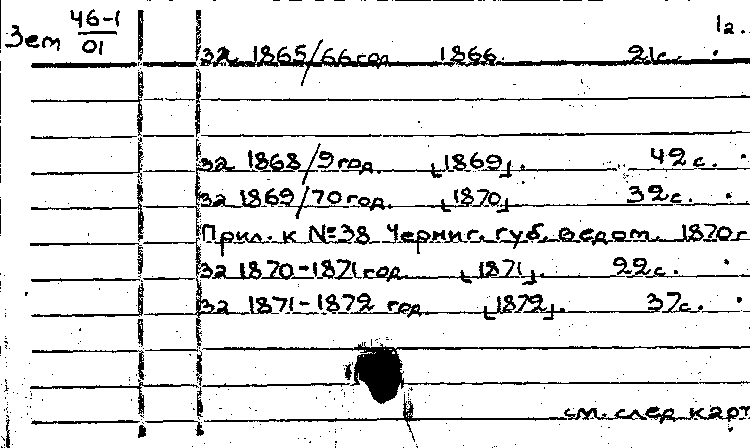 Зем 46-1/01
1а.
за 1865/66 год 1866 21с.
за 1868/9 год. [1869]. 42с.
за 1869/70 год. [1870] 32с.
Прил. к №38 Черниг. губ. ведом. 1870г
за 1870-1871 год. [1871]. 22с.
за 1871-1872 год. [1872]. 37с.
см. след карт